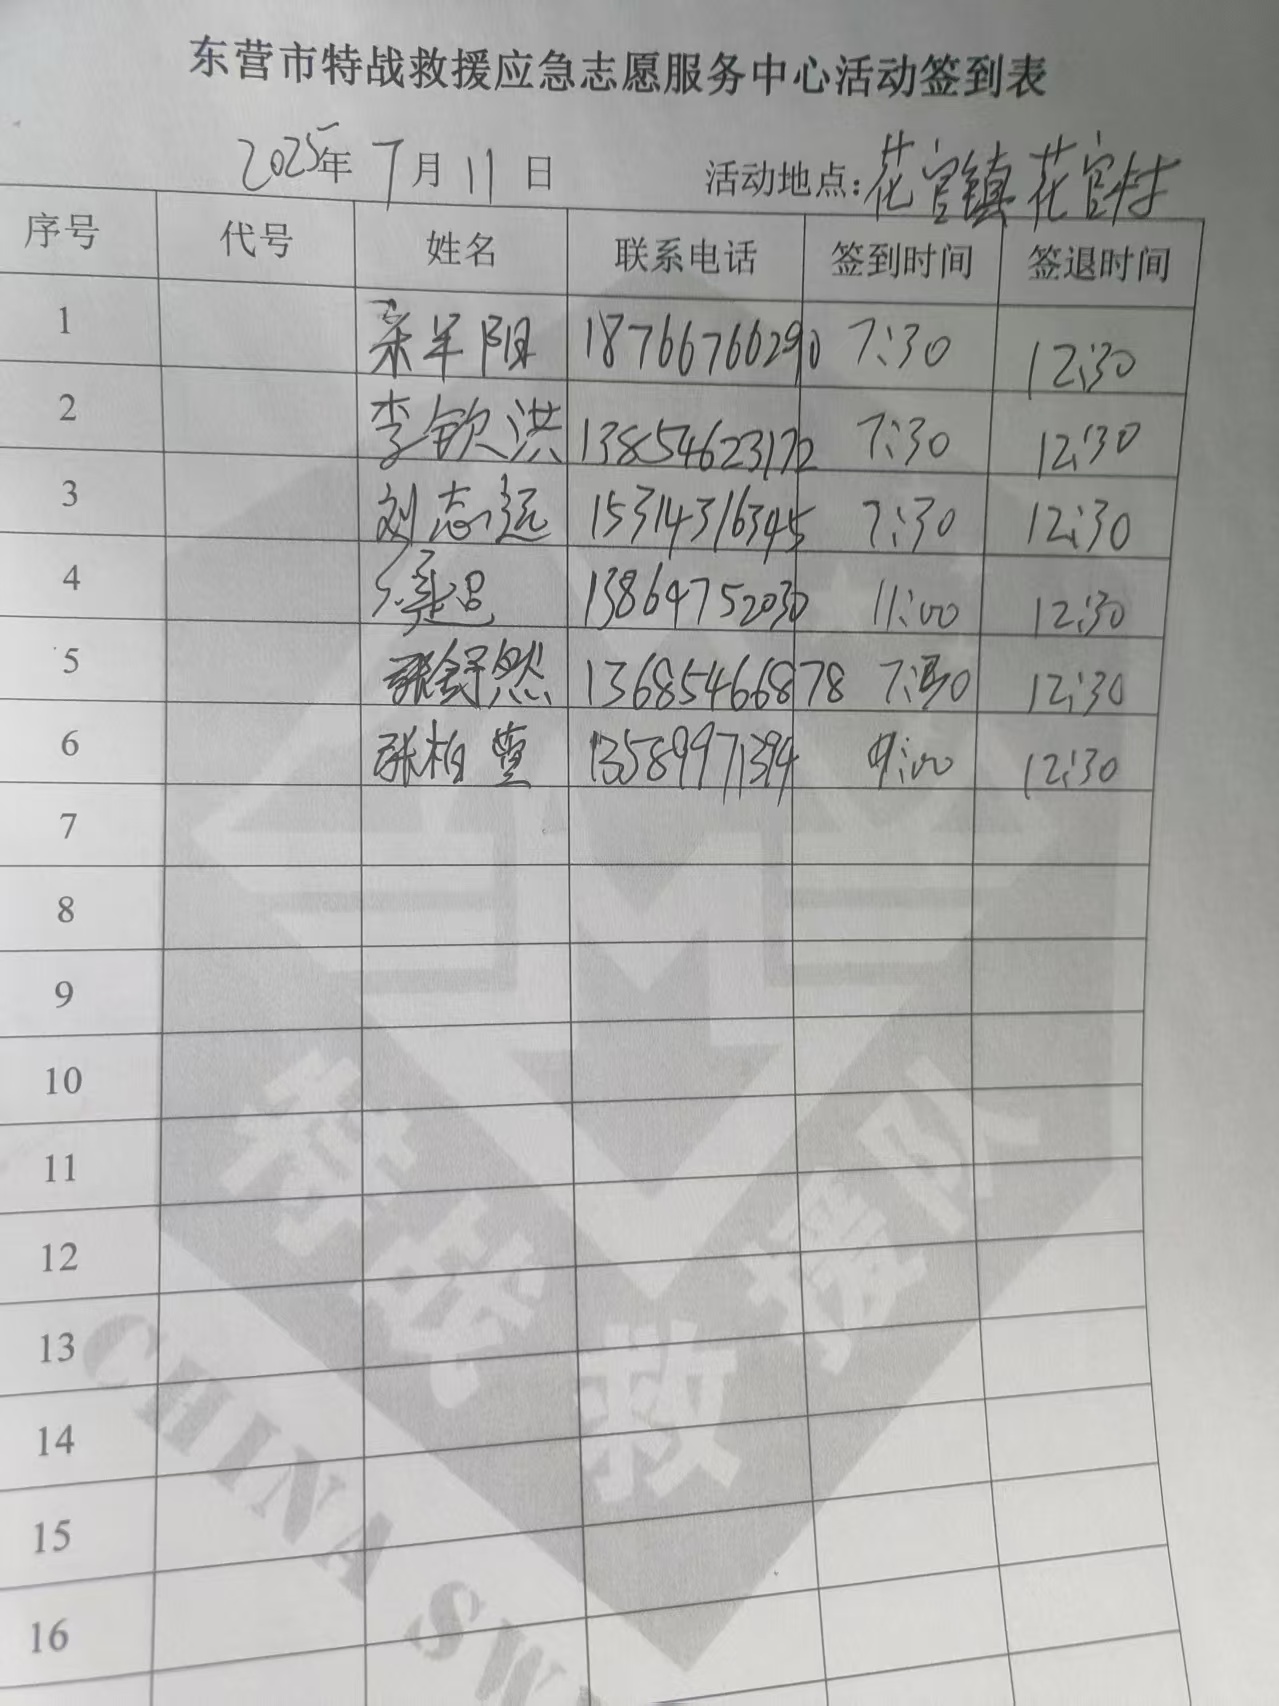 东营市特战救援应急志愿服务中心活动签到表
2025年 7月 11 日 活动地点:花官镇花官村
序号 代号 姓名 联系电话 签到时间 签退时间
1 阳 18766766290 7:30 12:30
2 李钦洪 13854623172 7:30 12:30
3 刘志远 15314316345 7:30 12:30
4 13864752030 11:00 12:30
5 张舒然 13685466878 7:30 12:30
6 张柏萱 13589971394 9:00 12:30
7
8
9
10
11
12
13
14
15
16
特战救援队
CHINA SW